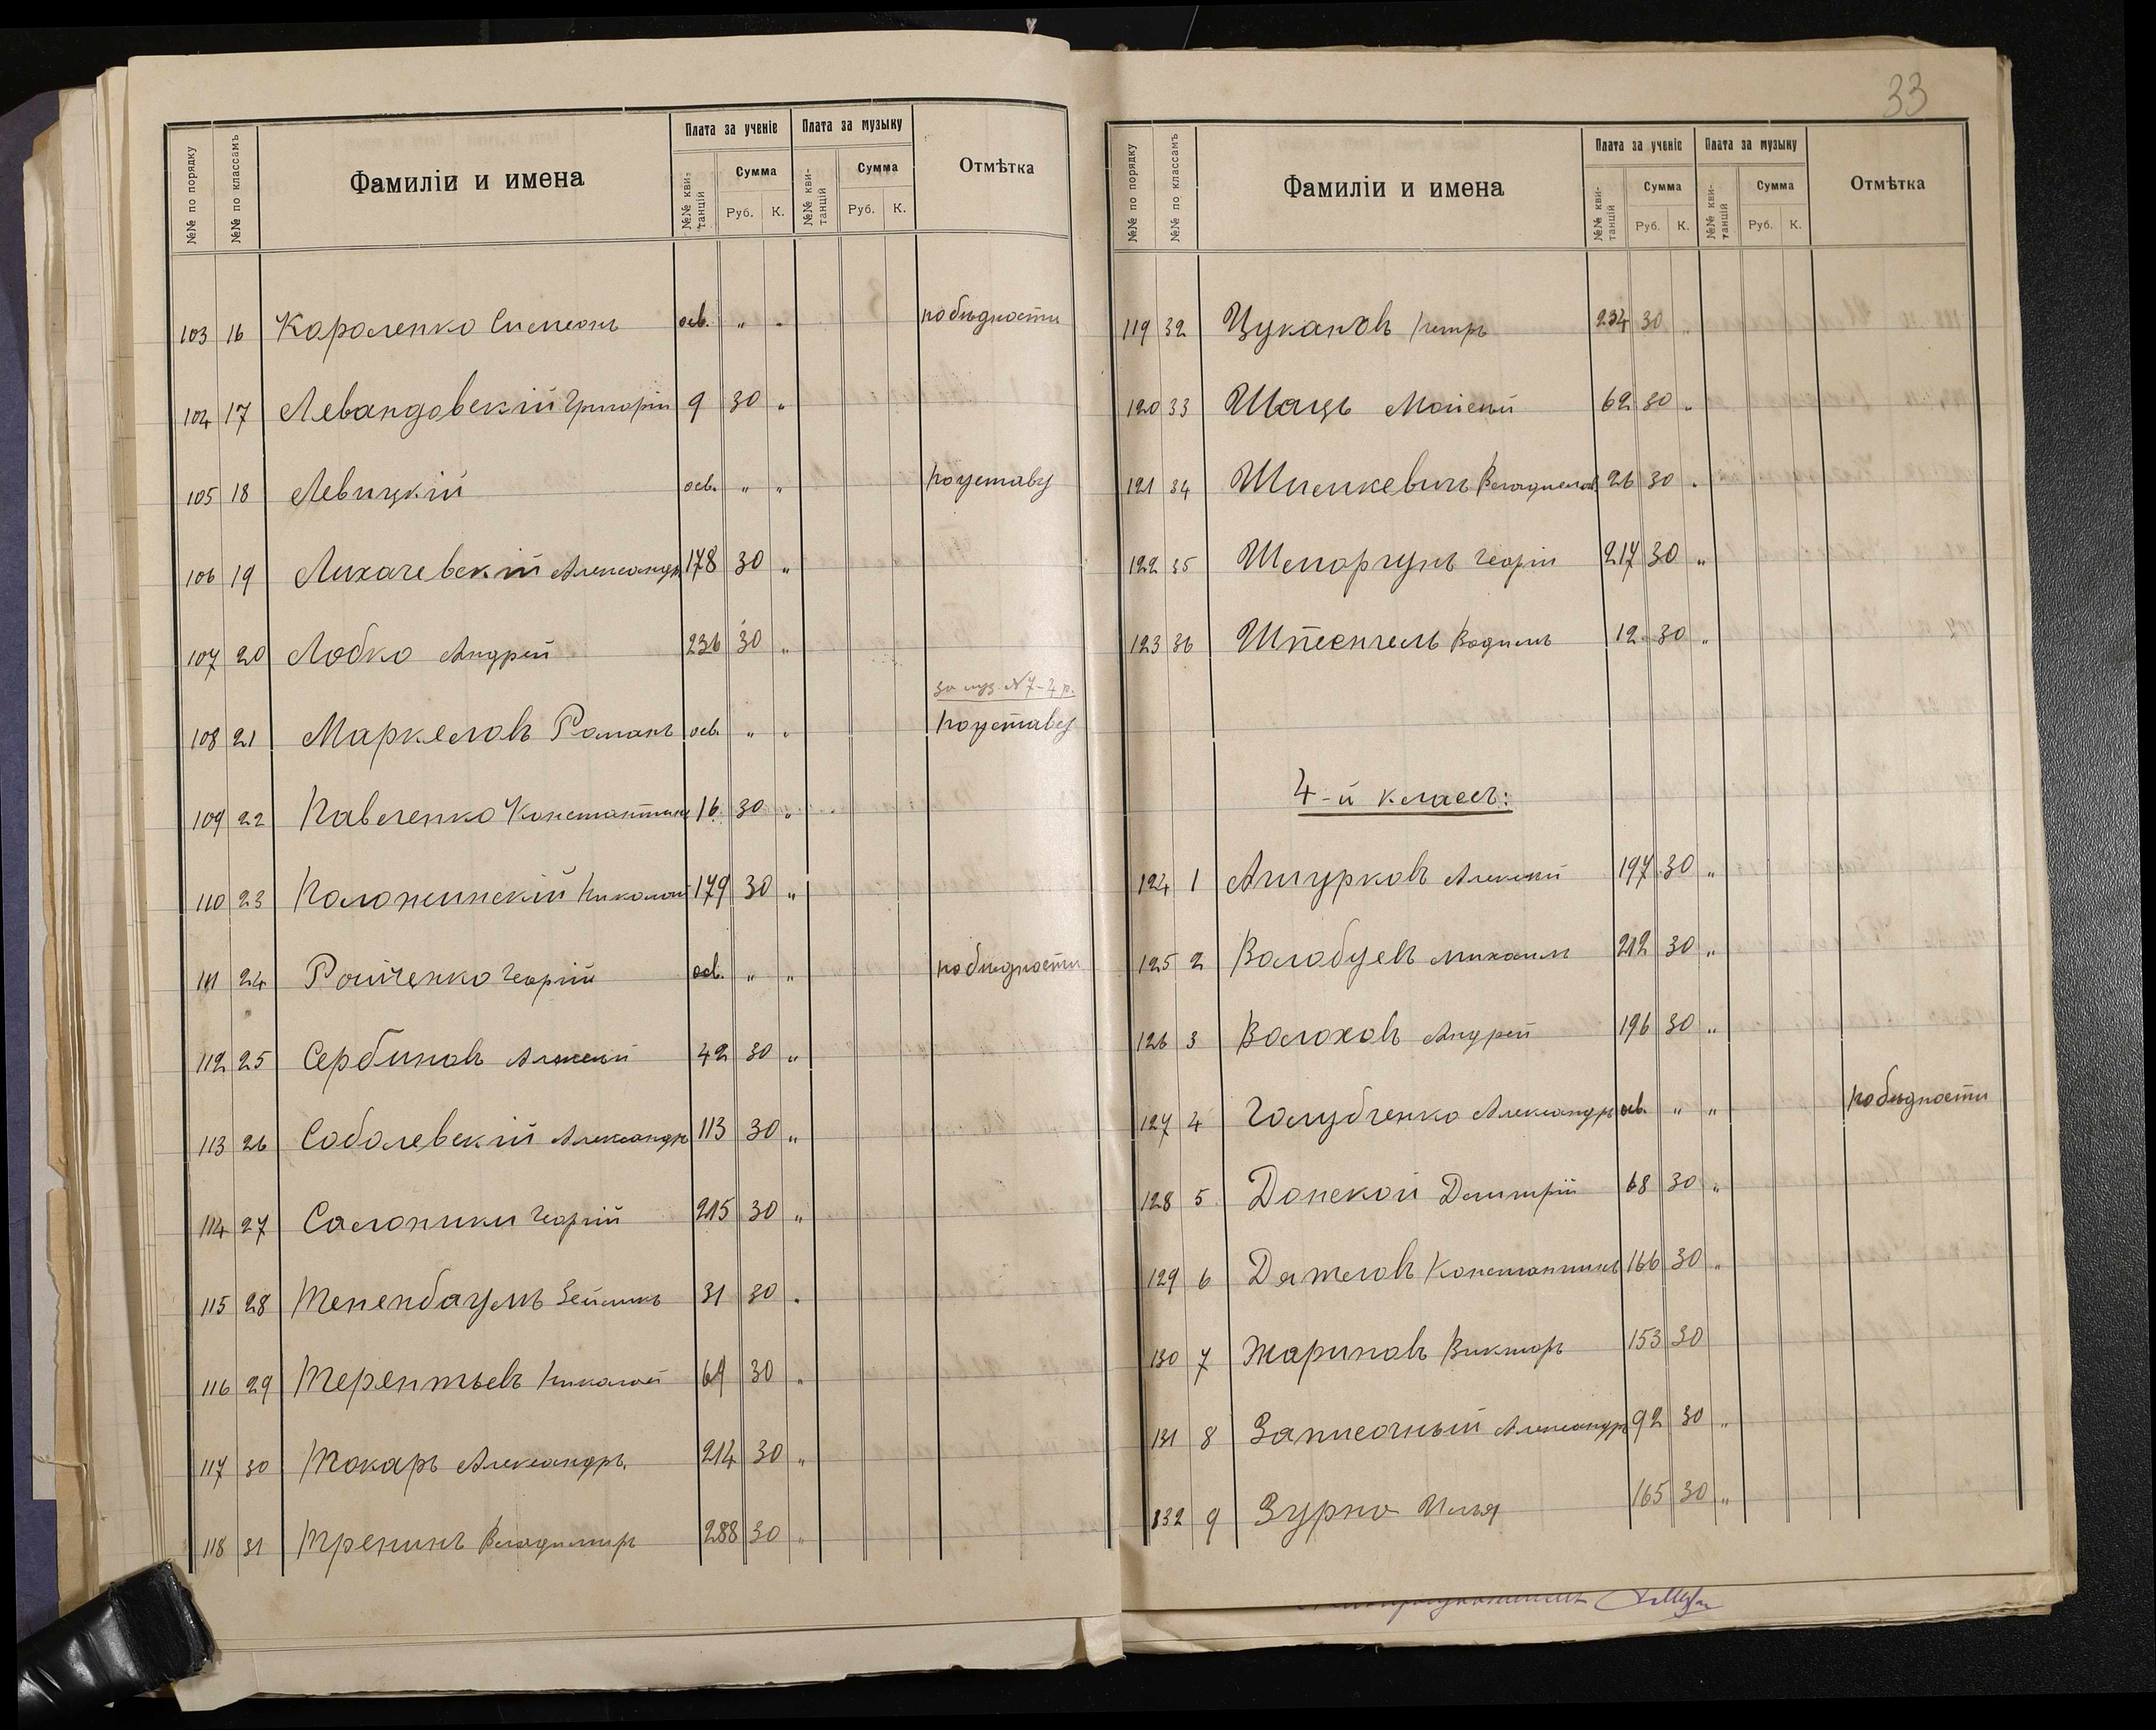 №№ по порядку №№ по классамъ Фамиліи и имена Плата за ученіе Плата за музыку Отмѣтка
№№ кви-танцій Сумма №№ кви-танцій Сумма
Руб. К. Руб. К.
103 16 Короленко Симеонъ осв. " " по бѣдности
104 17 Левандовскій Григорій 9 30 "
105 18 Левицкій осв. " " по уставу
106 19 Лихачевскій Александръ 178 30 "
107 20 Лобко Андрей 236 30 "
за муз. №7-7 р.
108 21 Маркеловъ Романъ осв. " " по уставу
109 22 Павленко Константинъ 16 30 "
110 23 Положинскій Николай 179 30 "
111 24 Ройченко Георгій осв. " " по бѣдности
112 25 Сербиновъ Алексѣй 42 30 "
113 26 Соболевскій Александръ 113 30 "
114 27 Солоники Георгій 215 30 "
115 28 Тененбаумъ Зейликъ 31 30 "
116 29 Терентьевъ Николай 69 30 "
117 30 Токарь Александръ 214 30 "
118 31 Тренинъ Владимиръ 288 30 "
33
№№ по порядку №№ по классамъ Фамиліи и имена Плата за ученіе Плата за музыку Отмѣтка
№№ кви-танцій Сумма №№ кви-танцій Сумма
Руб. К. Руб. К.
119 32 Цукановъ Петръ 234 30 "
120 33 Шацъ Моисей 62 30 "
121 34 Шимкевичъ 26 30 "
122 35 Георгій 217 30 "
123 36 Шпенглеръ Вадимъ 12 30 "
4-й классъ:
124 1 Ашурковъ Алексѣй 197 30 "
125 2 Волобуевъ Михаилъ 212 30 "
126 3 Волоховъ Андрей 196 30 "
127 4 Голубченко Александръ осв. " " по бѣдности
128 5 Донской Дмитрій 68 30 "
129 6 Дятловъ Константинъ 166 30 "
130 7 Жариновъ Викторъ 153 30
131 8 Записочный Александръ 92 30 "
132 9 Зурно Илья 165 30 "